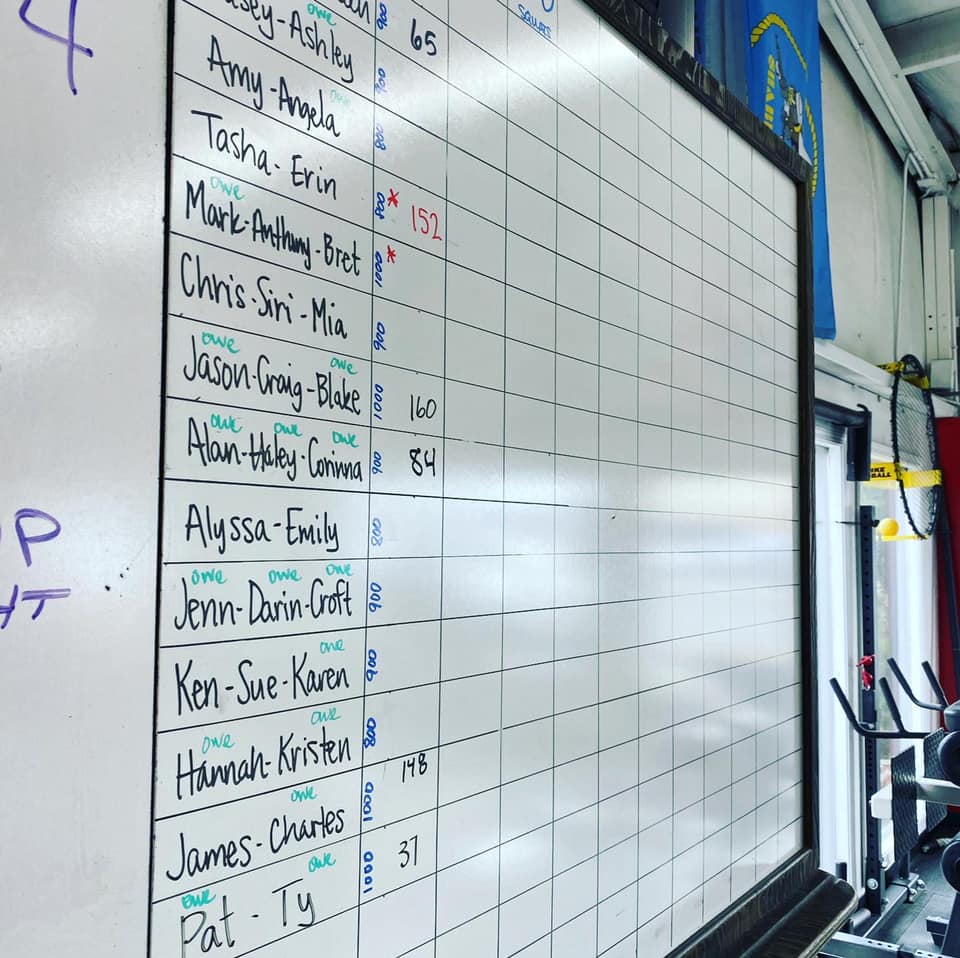 4
owe
-Ashley 900 65
squats
owe
Amy-Angela 900
Tasha-Erin 800
owe
Mark-Anthony-Bret 800 * 152
Chris-Siri-Mia 1000 *
owe owe
Jason-Craig-Blake 900
owe owe owe
Alan-Haley-Corinna 1000 160
Alyssa-Emily 900 84
owe owe owe
Jenn-Darin-Croft 800
owe
Ken-Sue-Karen 900
owe owe
Hannah-Kristen 900
owe
James-Charles 800 148
owe owe
Pat - Ty 1000 37
1000
P